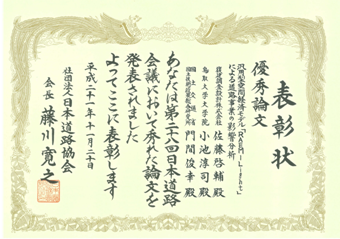 表彰状
優秀論文
汎用型空間経済モデル「RAEM-Light」
による道路事業の影響分析
佐藤啓輔殿
鳥取大学大学院 小池淳司殿
門間俊幸殿
あなたは第二十八回日本道路
会議において秀れた論文を
発表されました
よってここに表彰します
平成二十一年十一月二十日
社団法人日本道路協会
会長 藤川寛之